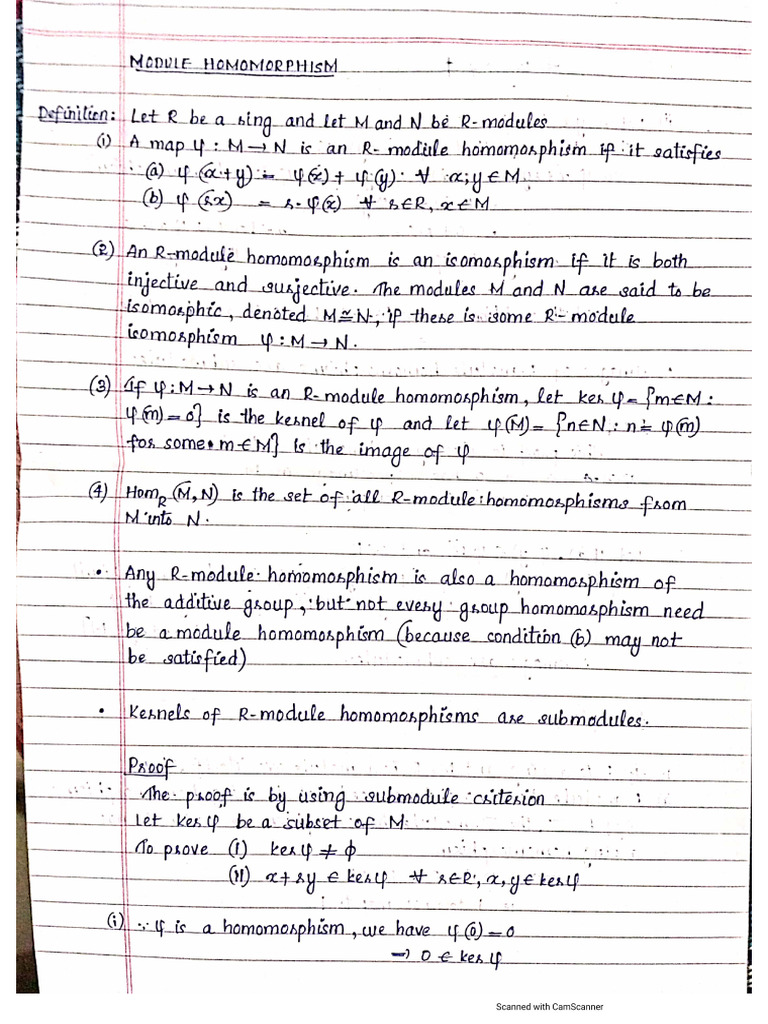 MODULE HOMOMORPHISM
Definition: Let R be a ring and let M and N be R-modules
(i) A map φ : M → N is an R-module homomorphism if it satisfies
(a) φ(x+y) = φ(x) + φ(y) ∀ x,y ∈ M
(b) φ(rx) = r·φ(x) ∀ r∈R, x∈M
(2) An R-module homomorphism is an isomorphism if it is both
injective and surjective. The modules M and N are said to be
isomorphic, denoted M≅N, if there is some R-module
isomorphism φ : M → N.
(3) If φ : M → N is an R-module homomorphism, let ker φ = {m∈M :
φ(m)=0} is the kernel of φ and let φ(M) = {n∈N : n = φ(m)
for some m∈M} is the image of φ
(4) Hom_R(M,N) is the set of all R-module homomorphisms from
M into N.
• Any R-module homomorphism is also a homomorphism of
the additive group, but not every group homomorphism need
be a module homomorphism (because condition (b) may not
be satisfied)
• Kernels of R-module homomorphisms are submodules.
Proof
The proof is by using submodule criterion
Let ker φ be a subset of M
To prove (i) ker φ ≠ ϕ
(ii) x+ry ∈ ker φ ∀ r∈R, x,y∈ker φ
(i) ∵ φ is a homomorphism, we have φ(0)=0
⇒ 0 ∈ ker φ
Scanned with CamScanner